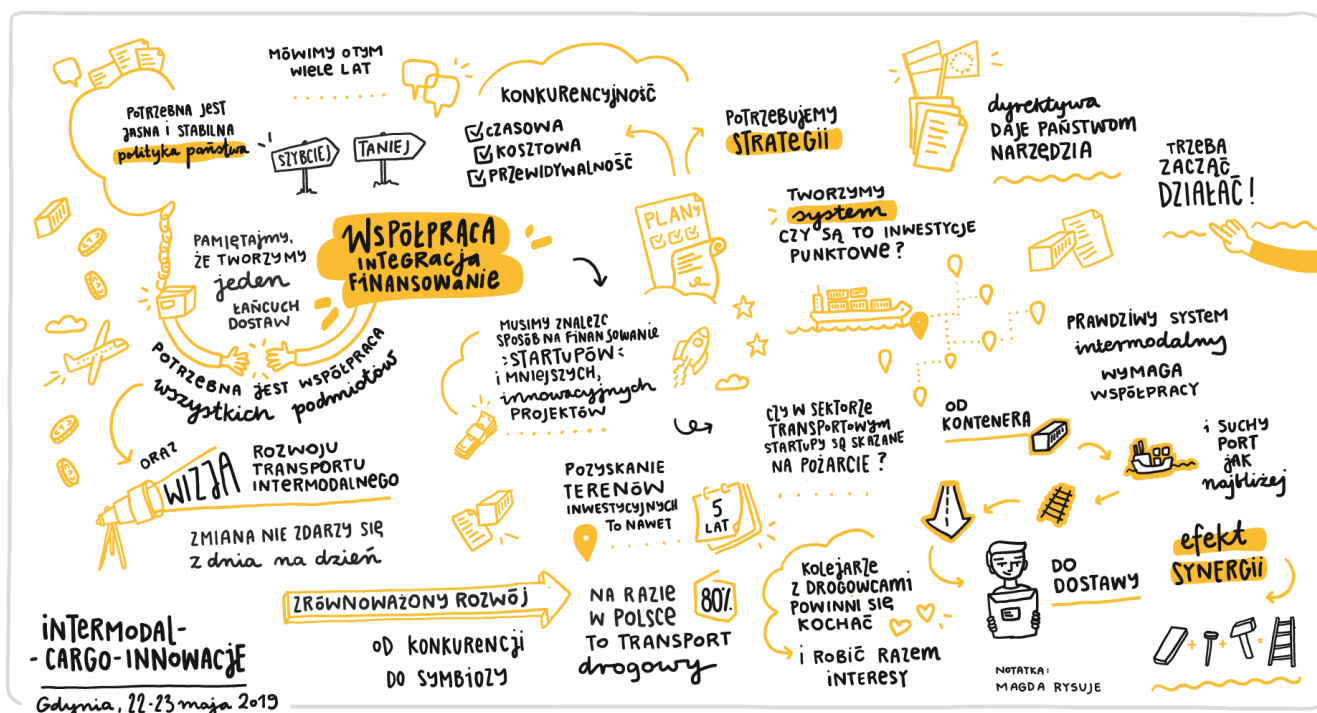 POTRZEBNA JEST
JASNA i STABILNA
polityka państwa
MÓWIMY O TYM
WIELE LAT
SZYBCIEJ
TANIEJ
KONKURENCYJNOŚĆ
CZASOWA
KOSZTOWA
PRZEWIDYWALNOŚĆ
POTRZEBUJEMY
STRATEGII
dyrektywa
DAJE PAŃSTWOM
NARZĘDZIA
TRZEBA
ZACZĄĆ
DZIAŁAĆ!
PAMIĘTAJMY,
ŻE TWORZYMY
jeden
ŁAŃCUCH
DOSTAW
WSPÓŁPRACA
INTEGRACJA
FINANSOWANIE
PLANY
TWORZYMY
system
CZY SĄ TO INWESTYCJE
PUNKTOWE?
POTRZEBNA JEST WSPÓŁPRACA
wszystkich podmiotów
MUSIMY ZNALEZC
SPOSÓB NA FINANSOWANIE
STARTUPÓW
i MNIEJSZYCH,
innowacyjnych
PROJEKTÓW
PRAWDZIWY SYSTEM
intermodalny
WYMAGA
WSPÓŁPRACY
ORAZ
WIZJA
ROZWOJU
TRANSPORTU
INTERMODALNEGO
ZMIANA NIE ZDARZY SIĘ
z dnia na dzień
POZYSKANIE
TERENÓW
INWESTYCYJNYCH
TO NAWET
5
LAT
CZY W SEKTORZE
TRANSPORTOWYM
STARTUPY SĄ SKAZANE
NA POŻARCIE?
OD
KONTENERA
i SUCHY
PORT
JAK
najbliżej
DO
DOSTAWY
efekt
SYNERGII
+ + =
ZRÓWNOWAŻONY ROZWÓJ
OD KONKURENCJI
DO SYMBIOZY
NA RAZIE
W POLSCE
TO TRANSPORT
drogowy
80%
KOLEJARZE
Z DROGOWCAMI
POWINNI SIĘ
KOCHAĆ
i ROBIĆ RAZEM
INTERESY
INTERMODAL-
-CARGO-INNOWACJE
Gdynia, 22-23 maja 2019
NOTATKA:
MAGDA RYSUJE